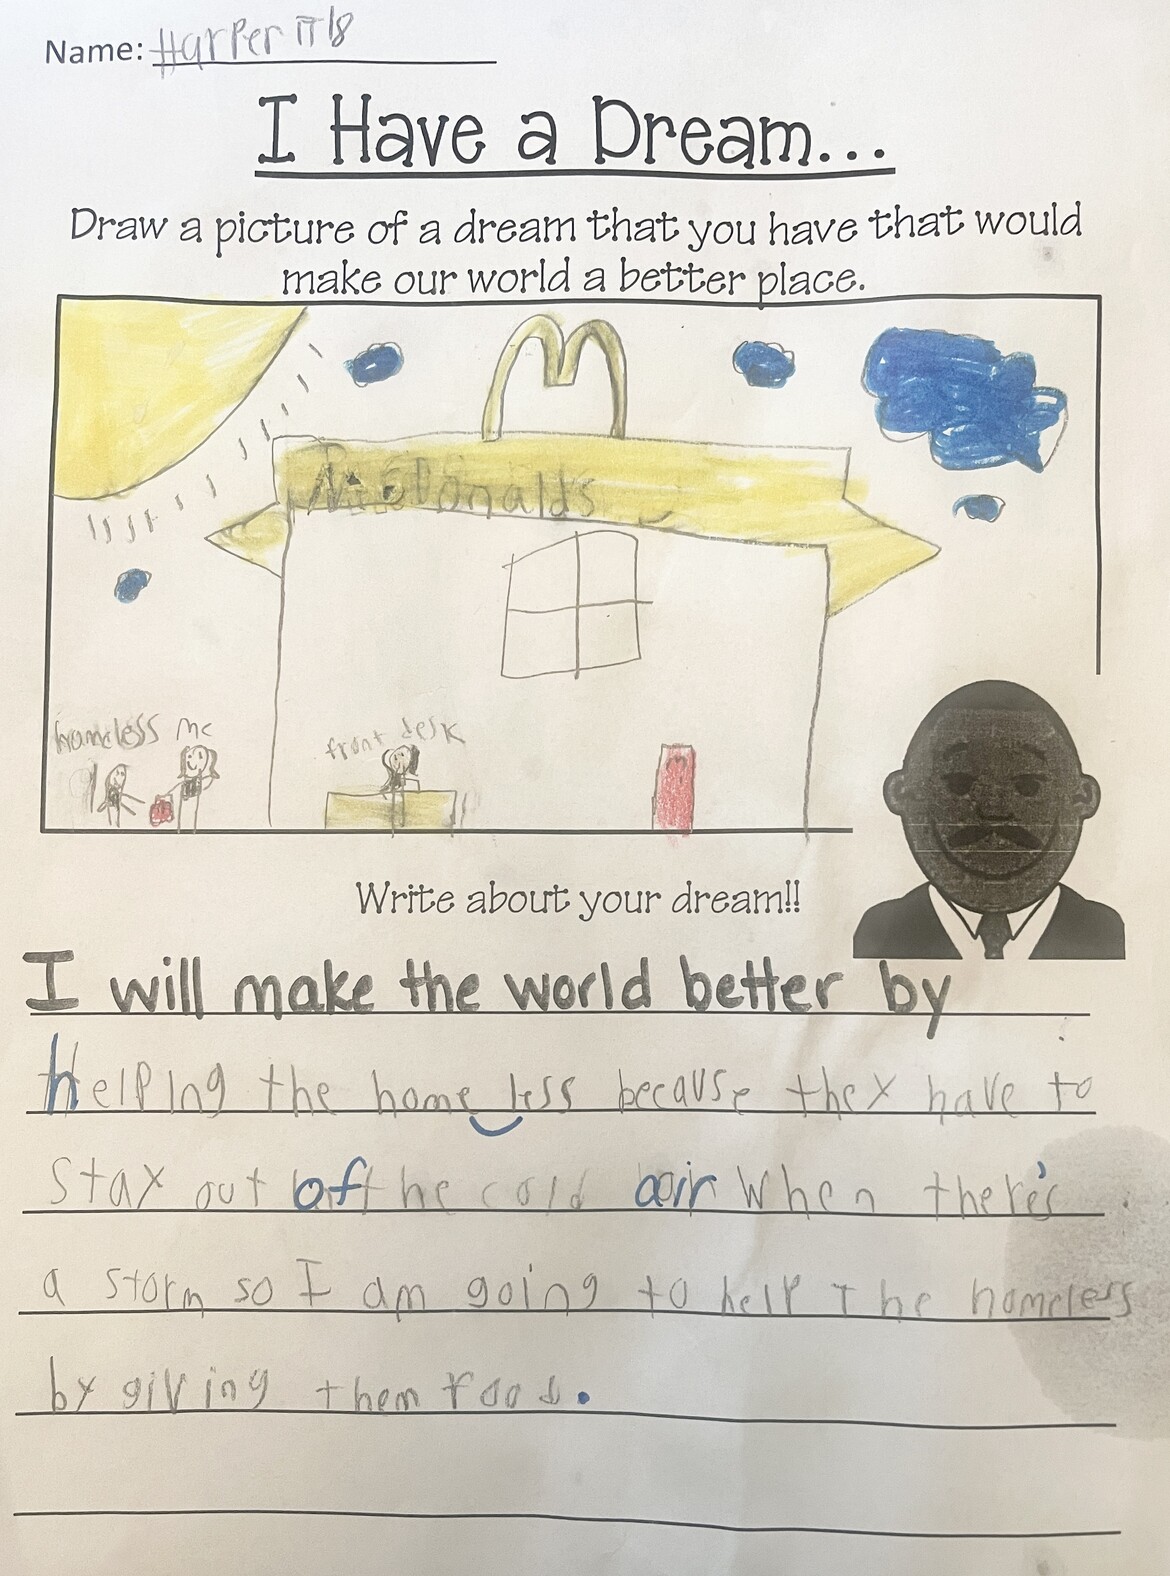 Name: Harper
I Have a Dream...
Draw a picture of a dream that you have that would
make our world a better place.
McDonald's
homeless me
front desk
Write about your dream!!
I will make the world better by
helping the homeless because they have to
stay out of the cold air when there's
a storm so I am going to help the homeless
by giving them food.